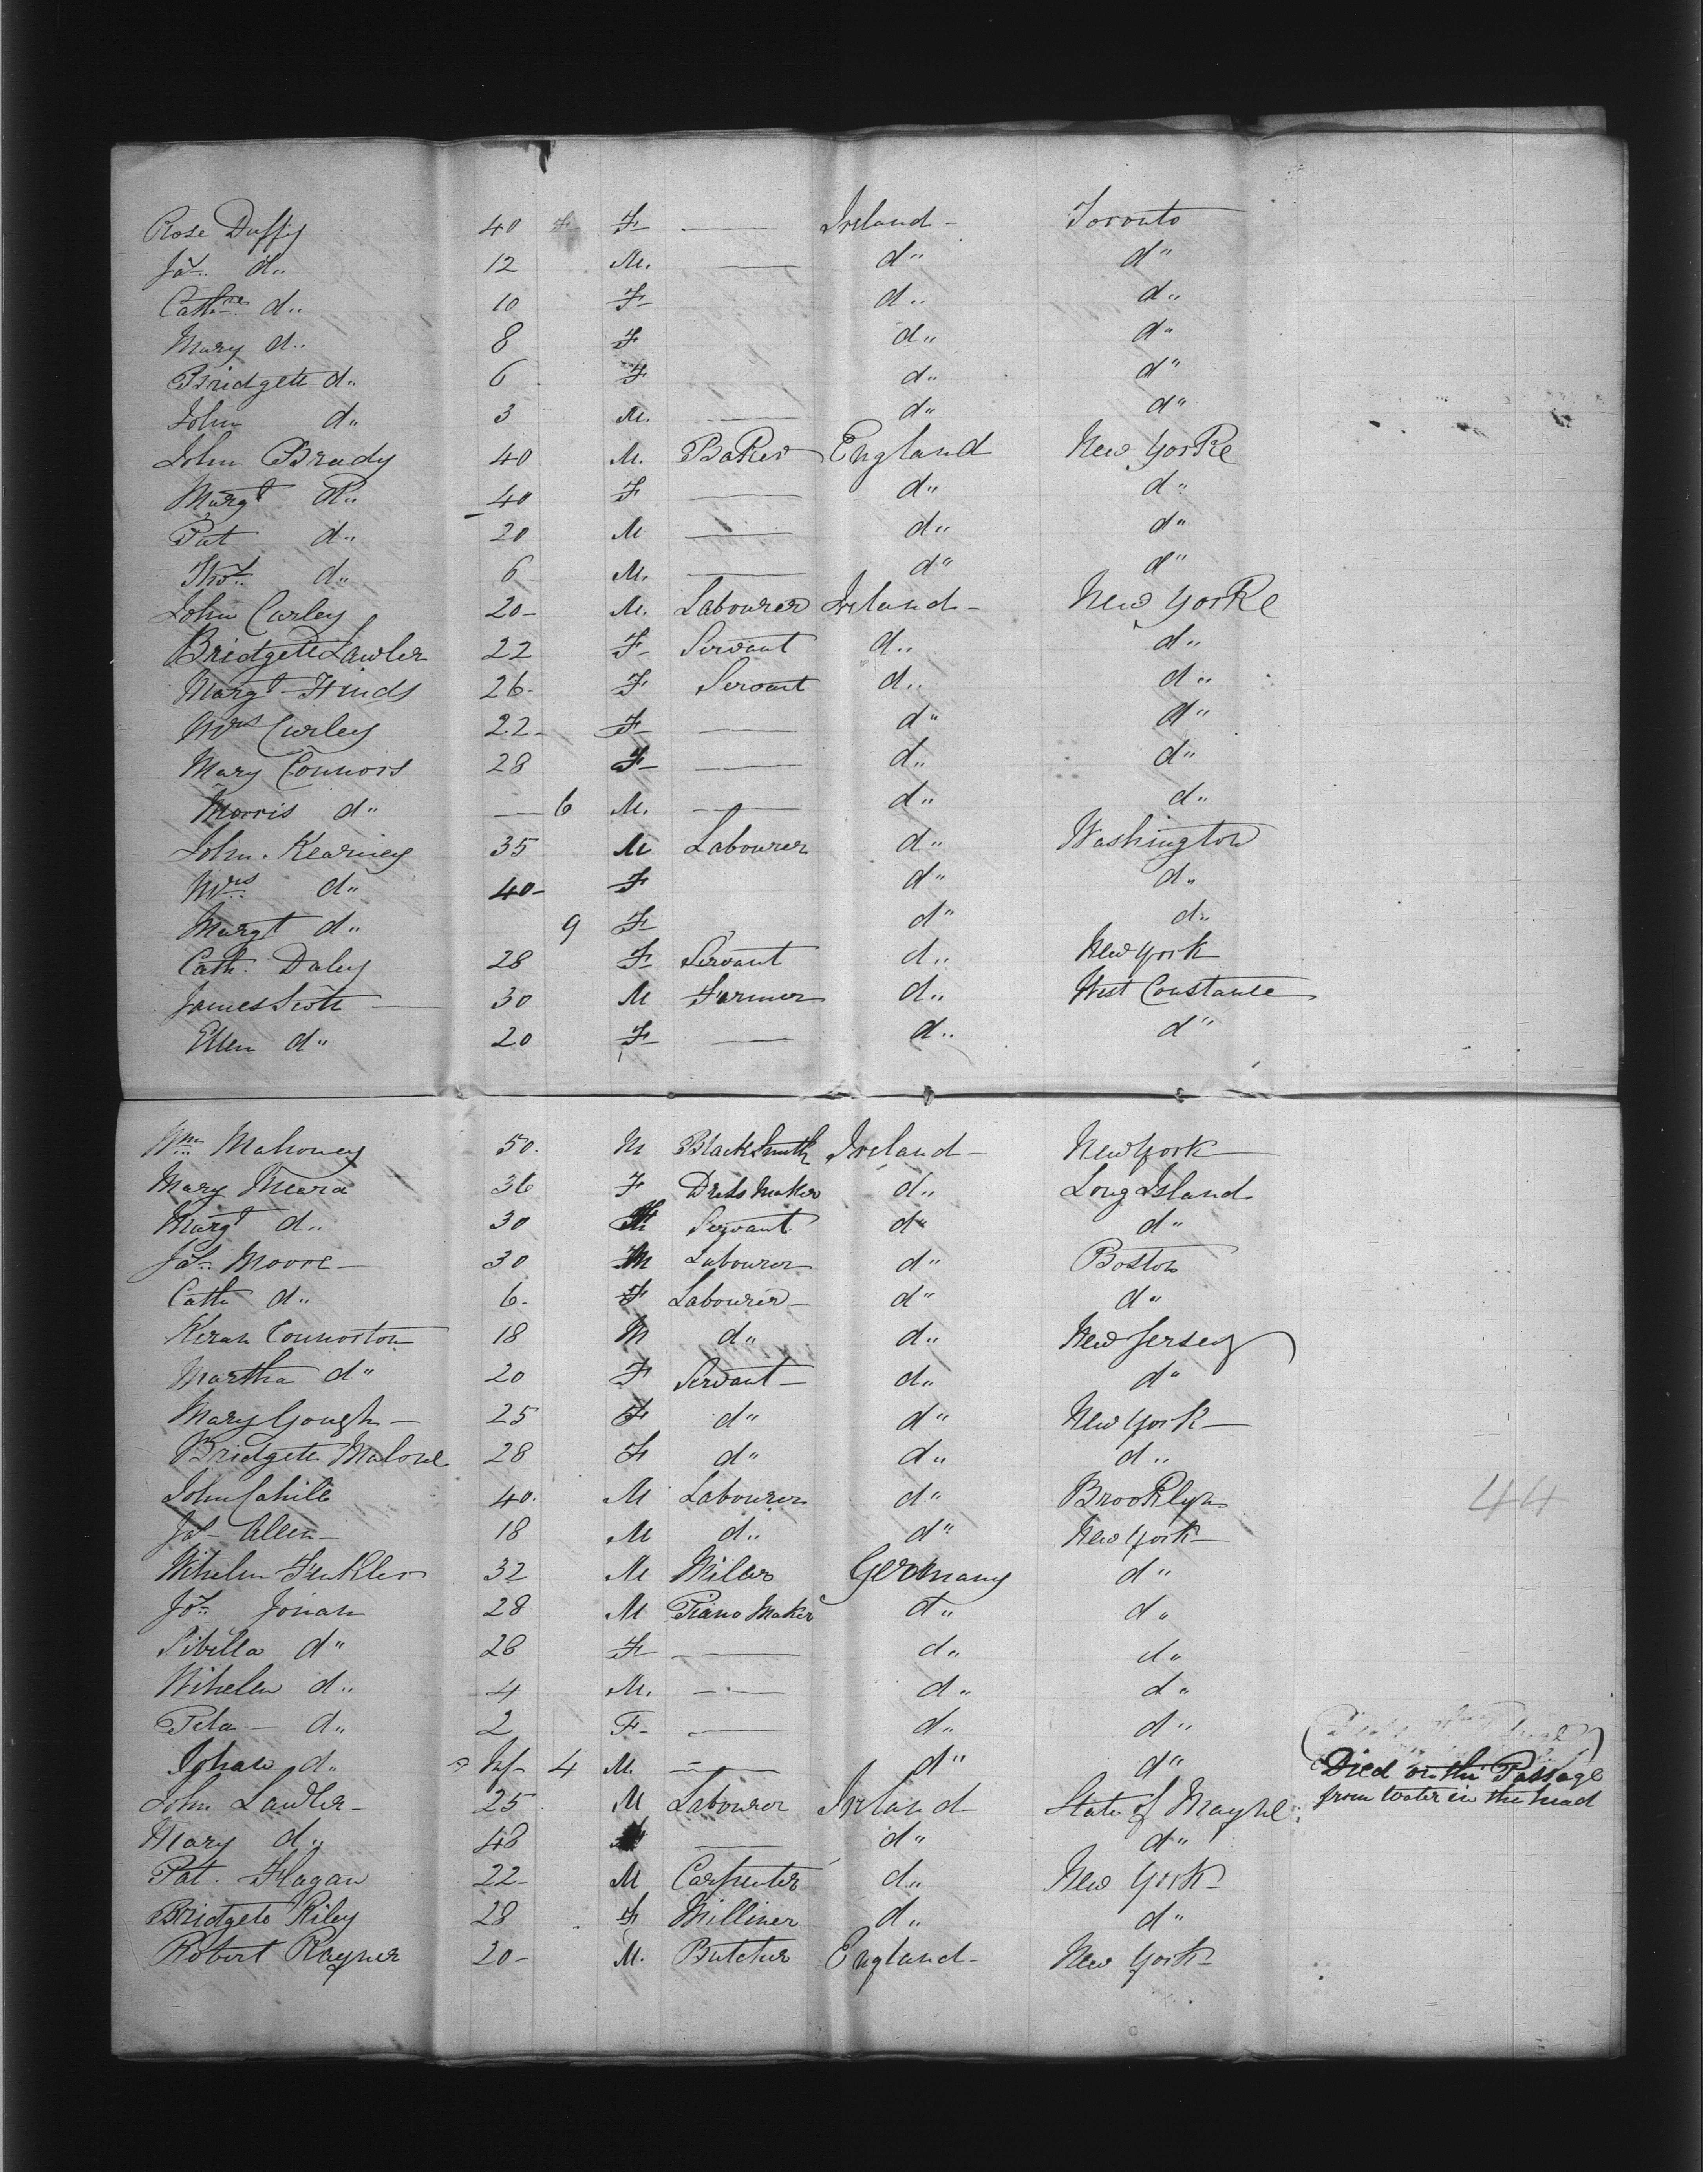 Rose Duffy 40 F F — Ireland - Toronto
Jas. d" 12 M. — d" d"
Cathne d" 10 F d" d"
Mary d" 8 F d" d"
Bridgett d" 6 F d" d"
John d" 3 M. — d" d"
John Brady 40 M. Baker England New Yorke
Margt d" 40 F — d" d"
Pat d" 20 M — d" d"
Thos. d" 6 M. — d" d"
John Curley 20- M. Labourer Ireland - New Yorke
Bridgett Lawler 22 F Servant d" d"
Margt Hinds 26- F Servant d" d"
Mrs Curley 22- F — d" d"
Mary Connors 28 F — d" d"
Morris d" — 6 M. — d" d"
John Kearney 35 M Labourer d" Washington
Mrs d" 40- F d" d"
Margt d" 9 F d" d"
Cath. Daley 28 F Servant d" New York
James Scott — 30 M Farmer d" West Constance
Ellen d" 20 F — d" d"
Wm Mahoney 50. M BlackSmith Ireland - New York
Mary Meara 36 F Dress Maker d" Long Island
Margt d" 30 Servant d" d"
Jas. Moore - 30 M Labourer d" Boston
Cath d" 6. F Labourer - d" d"
Keran Connorton 18 M d" d" New Jersey
Martha d" 20 F Servant - d" d"
Mary Gough - 25 F d" d" New York
Bridgett Malone 28 F d" d" d"
John Cahill 40. M Labourer d" Brooklyn
44
Jas Allen - 18 M d" d" New York
Wihelm 32 M Miler Germany d"
Jos. Jonah 28 M Piano Maker d" d"
Sibilla d" 28 F — d" d"
Wihelm d" 4 M. — d" d"
Peta - d" 2 F- — d" d"
Johan d" Inf- 4 M. — d" d" Died on the Passage
from water in the head
John Lawler - 25 M Labourer Ireland State of Mayne
Mary d" 48 — d" d"
Pat. Flagan 22- M Carpenter d" New York
Bridgett Riley 28 F Milliner d" d"
Robert Rayner 20- M. Butcher England - New York